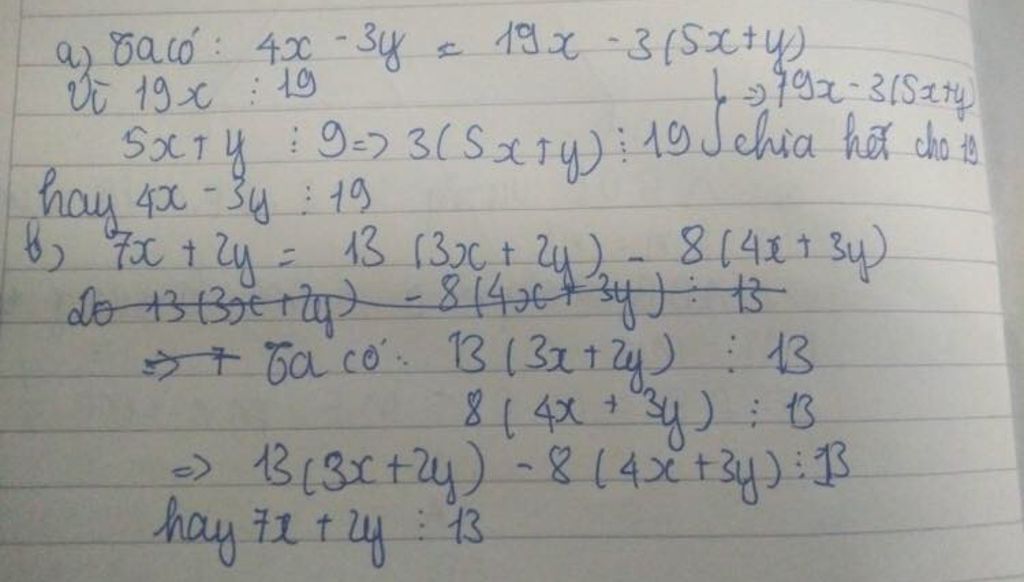 a, Ta có: 4x - 3y = 19x - 3(5x+y)
Vì 19x ⋮ 19
=> 19x - 3(5x+y)
5x + y ⋮ 9 => 3(5x+y) ⋮ 19 chia hết cho 19
hay 4x - 3y ⋮ 19
b) 7x + 2y = 13 (3x + 2y) - 8(4x + 3y)
Do 13(3x+2y) - 8(4x + 3y) ⋮ 13
=> 7 Ta có: 13(3x+2y) ⋮ 13
8(4x + 3y) ⋮ 13
=> 13(3x+2y) - 8(4x+3y) ⋮ 13
hay 7x + 2y ⋮ 13